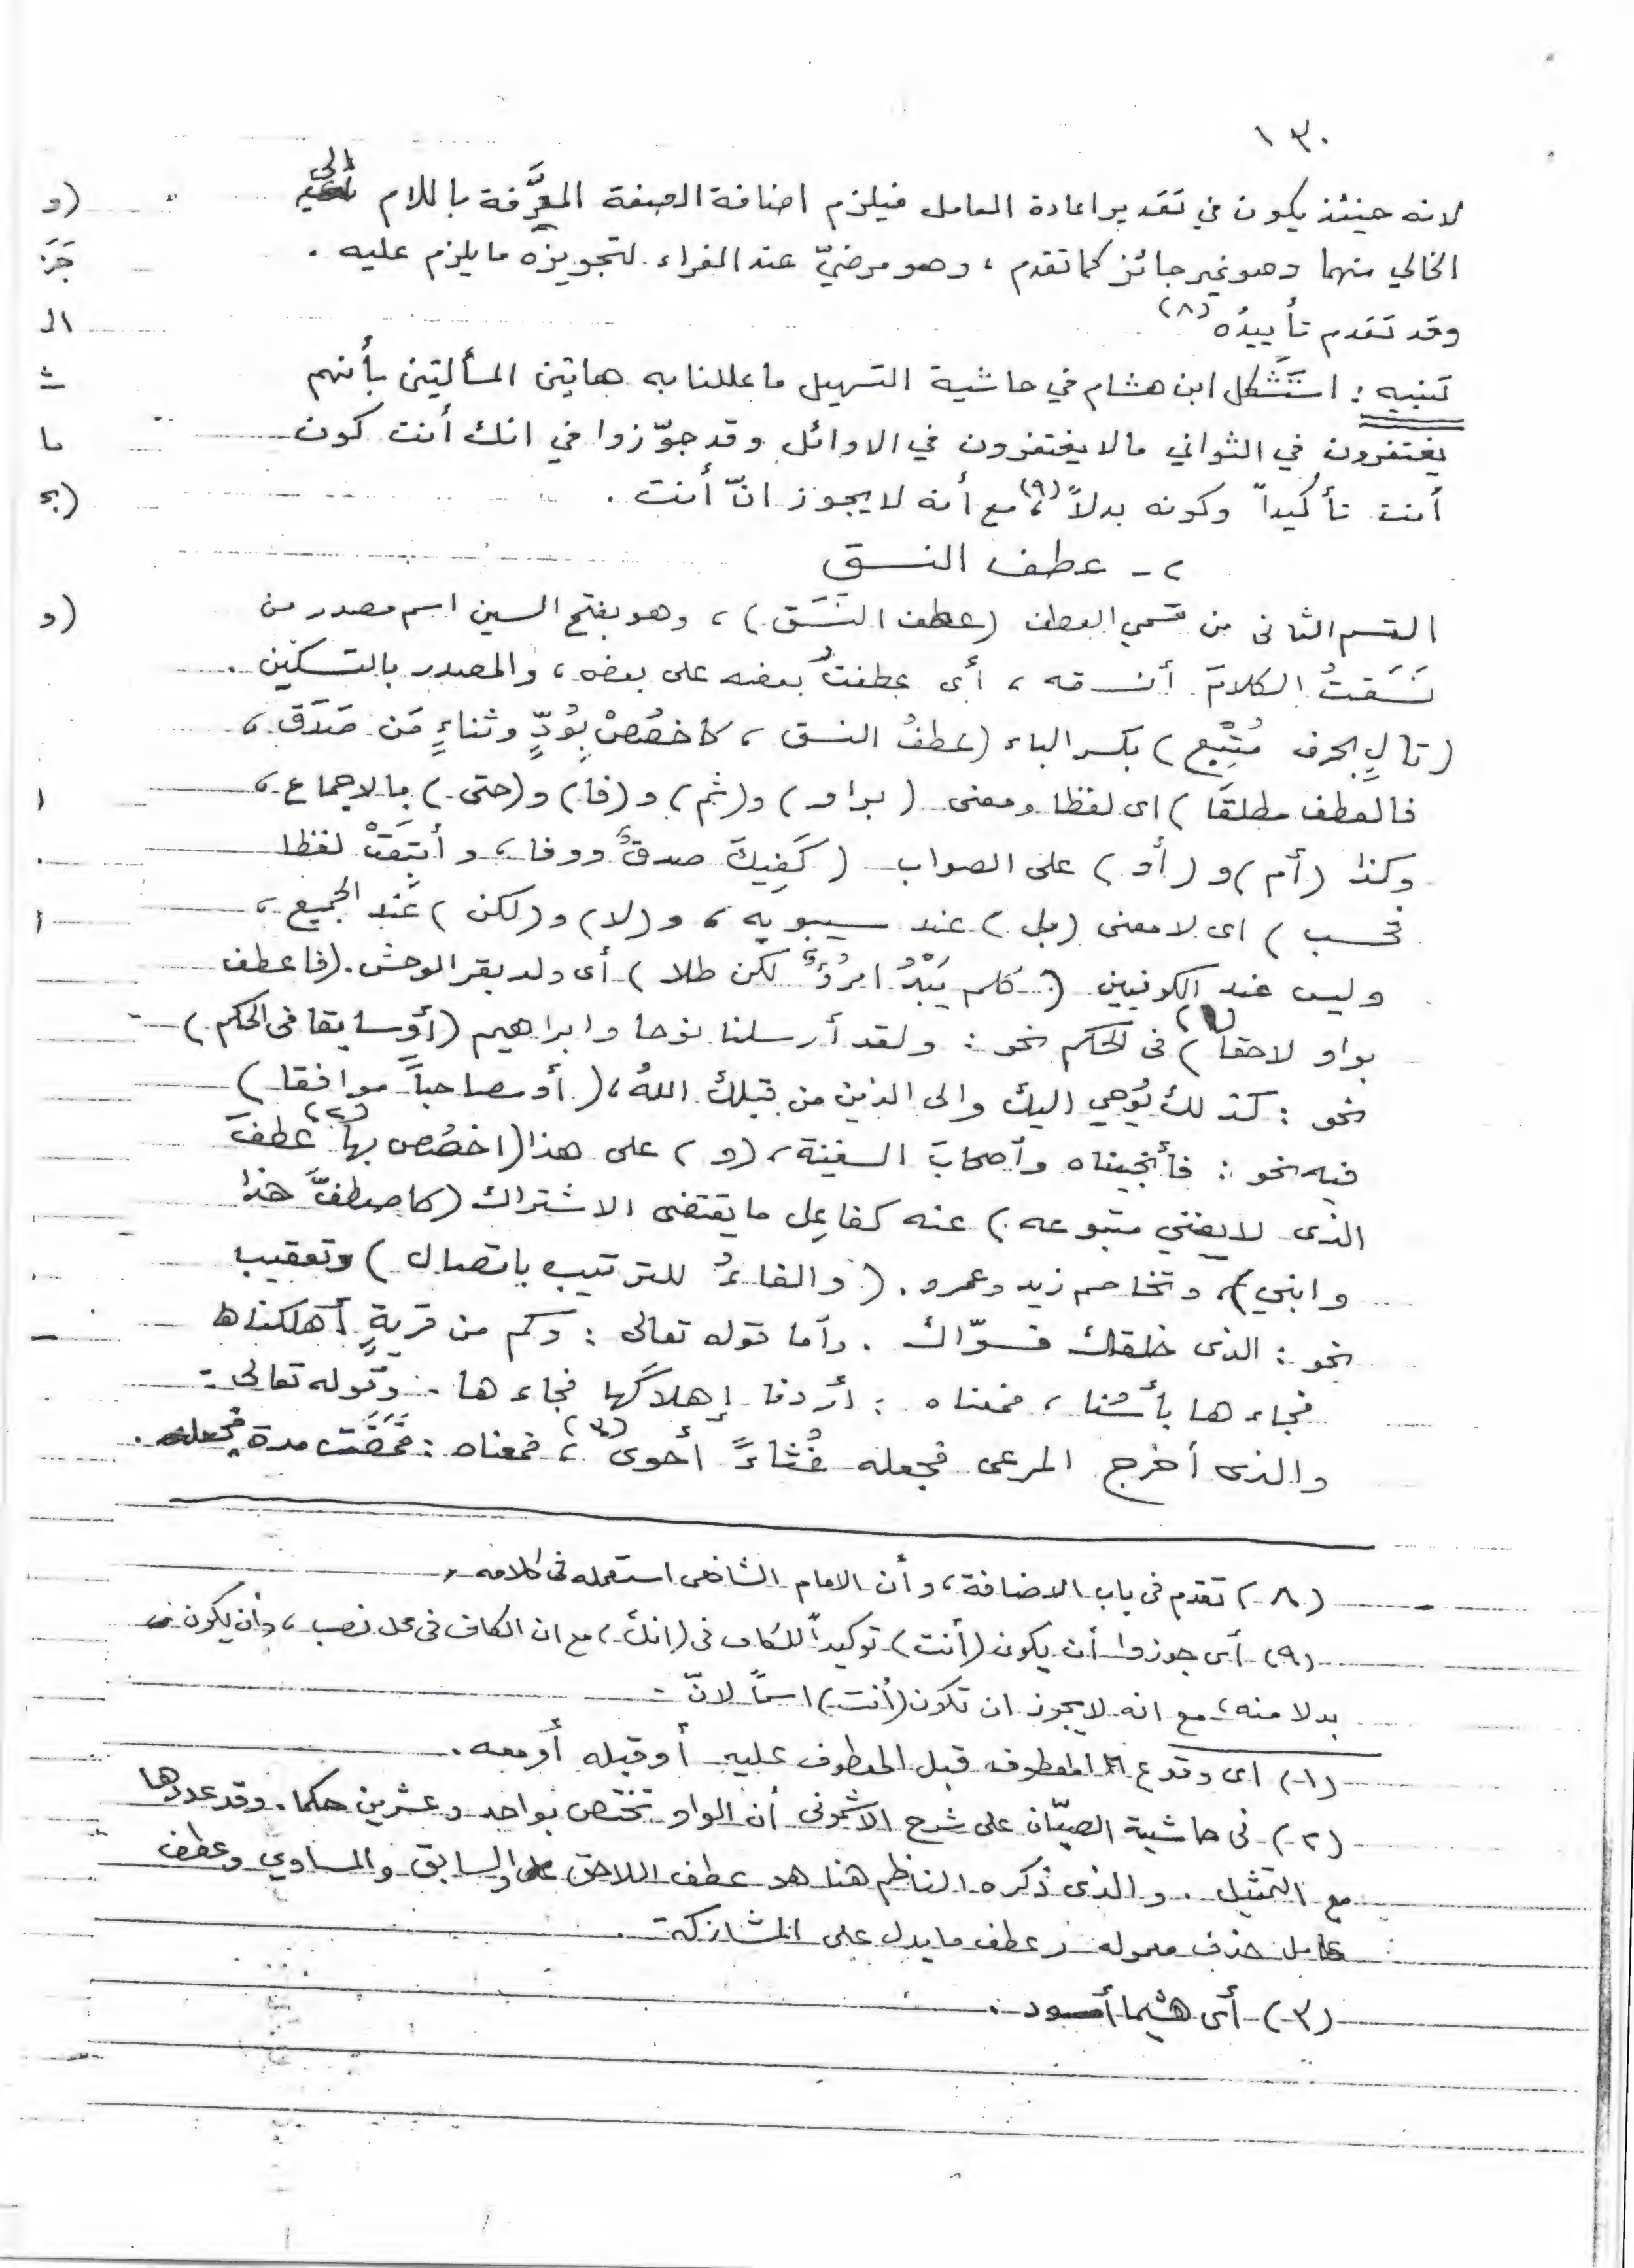 ١٣٠
لانه حينئذ يكون في تقدير اعادة العامل فيلزم اضافة الصفة المعرَّفة باللام الى
الخالي منهما وهو غير جائز كما تقدم ، وهو مرضيّ عند الفراء لتجويزه ما يلزم عليه .
وقد تقدم تأييدُه (٨)
تنبيه : استَشكل ابن هشام في حاشية التسهيل ما عللنا به هاتين المسألتين بأنهم
يغتفرون في الثواني مالا يغتفرون في الاوائل وقد جوّزوا في انك أنت كون
أنت تأكيداً وكونه بدلاً (٩)، مع أنه لا يجوز انّ أنت .
٢ - عطف النسق
القسم الثانى من قسمي العطف (عطف النَّسَق) ، وهو بفتح السين اسم مصدر من
نَسَقتُ الكلامَ أنسقه ، أى عطفتُ بعضه على بعض ، والمصدر بالتسكين .
(تالٍ بحرف مُتْبِع) بكسر الباء (عطفُ النسق ، كاخصُصْ بِوُدٍّ وثناءٍ مَن صَدَقَ ،
فالعطف مطلقًا) اى لفظا ومعنى (بواو) و(ثم) و (فا) و(حتى) بالاجماع ،
وكذا (أم) و (أو) على الصواب (كَفِيكَ صدقٌ ووفا ، وأتبَعَتْ لفظا
فحسب) اى لا معنى (بل) عند سيبويه ، و (لا) و(لكن) عند الجميع ،
وليس عند الكوفيين (كلم يَبْدُ امرُؤٌ لكن طلا) أى ولد بقر الوحش . (فاعطف
بواو لاحقا (١)) فى الحكم نحو : ولقد أرسلنا نوحا وابراهيم (أو سابقا فى الحكم)
نحو : كذلك يُوحِي اليك والى الذين من قبلك اللهُ ، (أو مصاحباً موافقا)
فيه نحو : فأنجيناه وأصحابَ السفينة ، (و) على هذا (اخصُص بها (٢) عطفَ
الذى لا يغني متبوعه) عنه كفاعِل ما يقتضى الاشتراك (كاصطفَّ هذا
وابني) ، وتخاصم زيد وعمرو . (والفاءُ للترتيب باتصال) وتعقيب
نحو : الذى خلقك فسوّاك . وأما قوله تعالى : وكم من قريةٍ أهلكناها
فجاءها بأسُنا ، فمعناه : أردنا إهلاكَها فجاءها . وقوله تعالى :
والذى أخرج المرعى فجعله غُثاءً أحوى (٣) ، فمعناه : فمَضَت مدة فجعله .
(٨) تقدم فى باب الاضافة ، وأن الامام الشافعى استعمله فى كلامه .
(٩) أى جوزوا أن يكون (أنت) توكيداً للكاف فى (انك) ، مع ان الكاف فى محل نصب ، وأن يكون
بدلا منه ، مع انه لا يجوز ان تكون (أنت) اسماً لانّ .
(١) اى وقوع المعطوف قبل المعطوف عليه أو قبله أو معه .
(٢) فى حاشية الصبّان على شرح الاشمونى أن الواو تختص بواحد وعشرين حكما . وقد عددها
مع التمثيل . والذى ذكره الناظم هنا هو عطف اللاحق والسابق والمساوي وعطف
عامل حذف معموله وعطف ما يدل على المشاركة .
(٣) أى هشيما أسود .